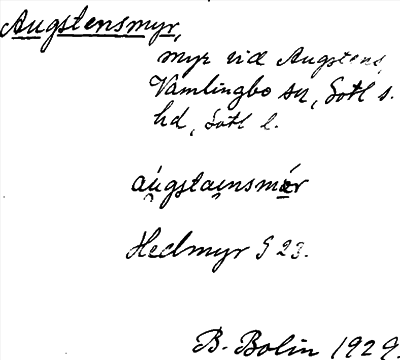 Augstensmyr,
myr vid Augstens,
Vamlingbo sn, Gotl s.
hd, Gotl l.
aúgstaɩnsmær
Hedmyr S 23.
B. Bolin 1929.